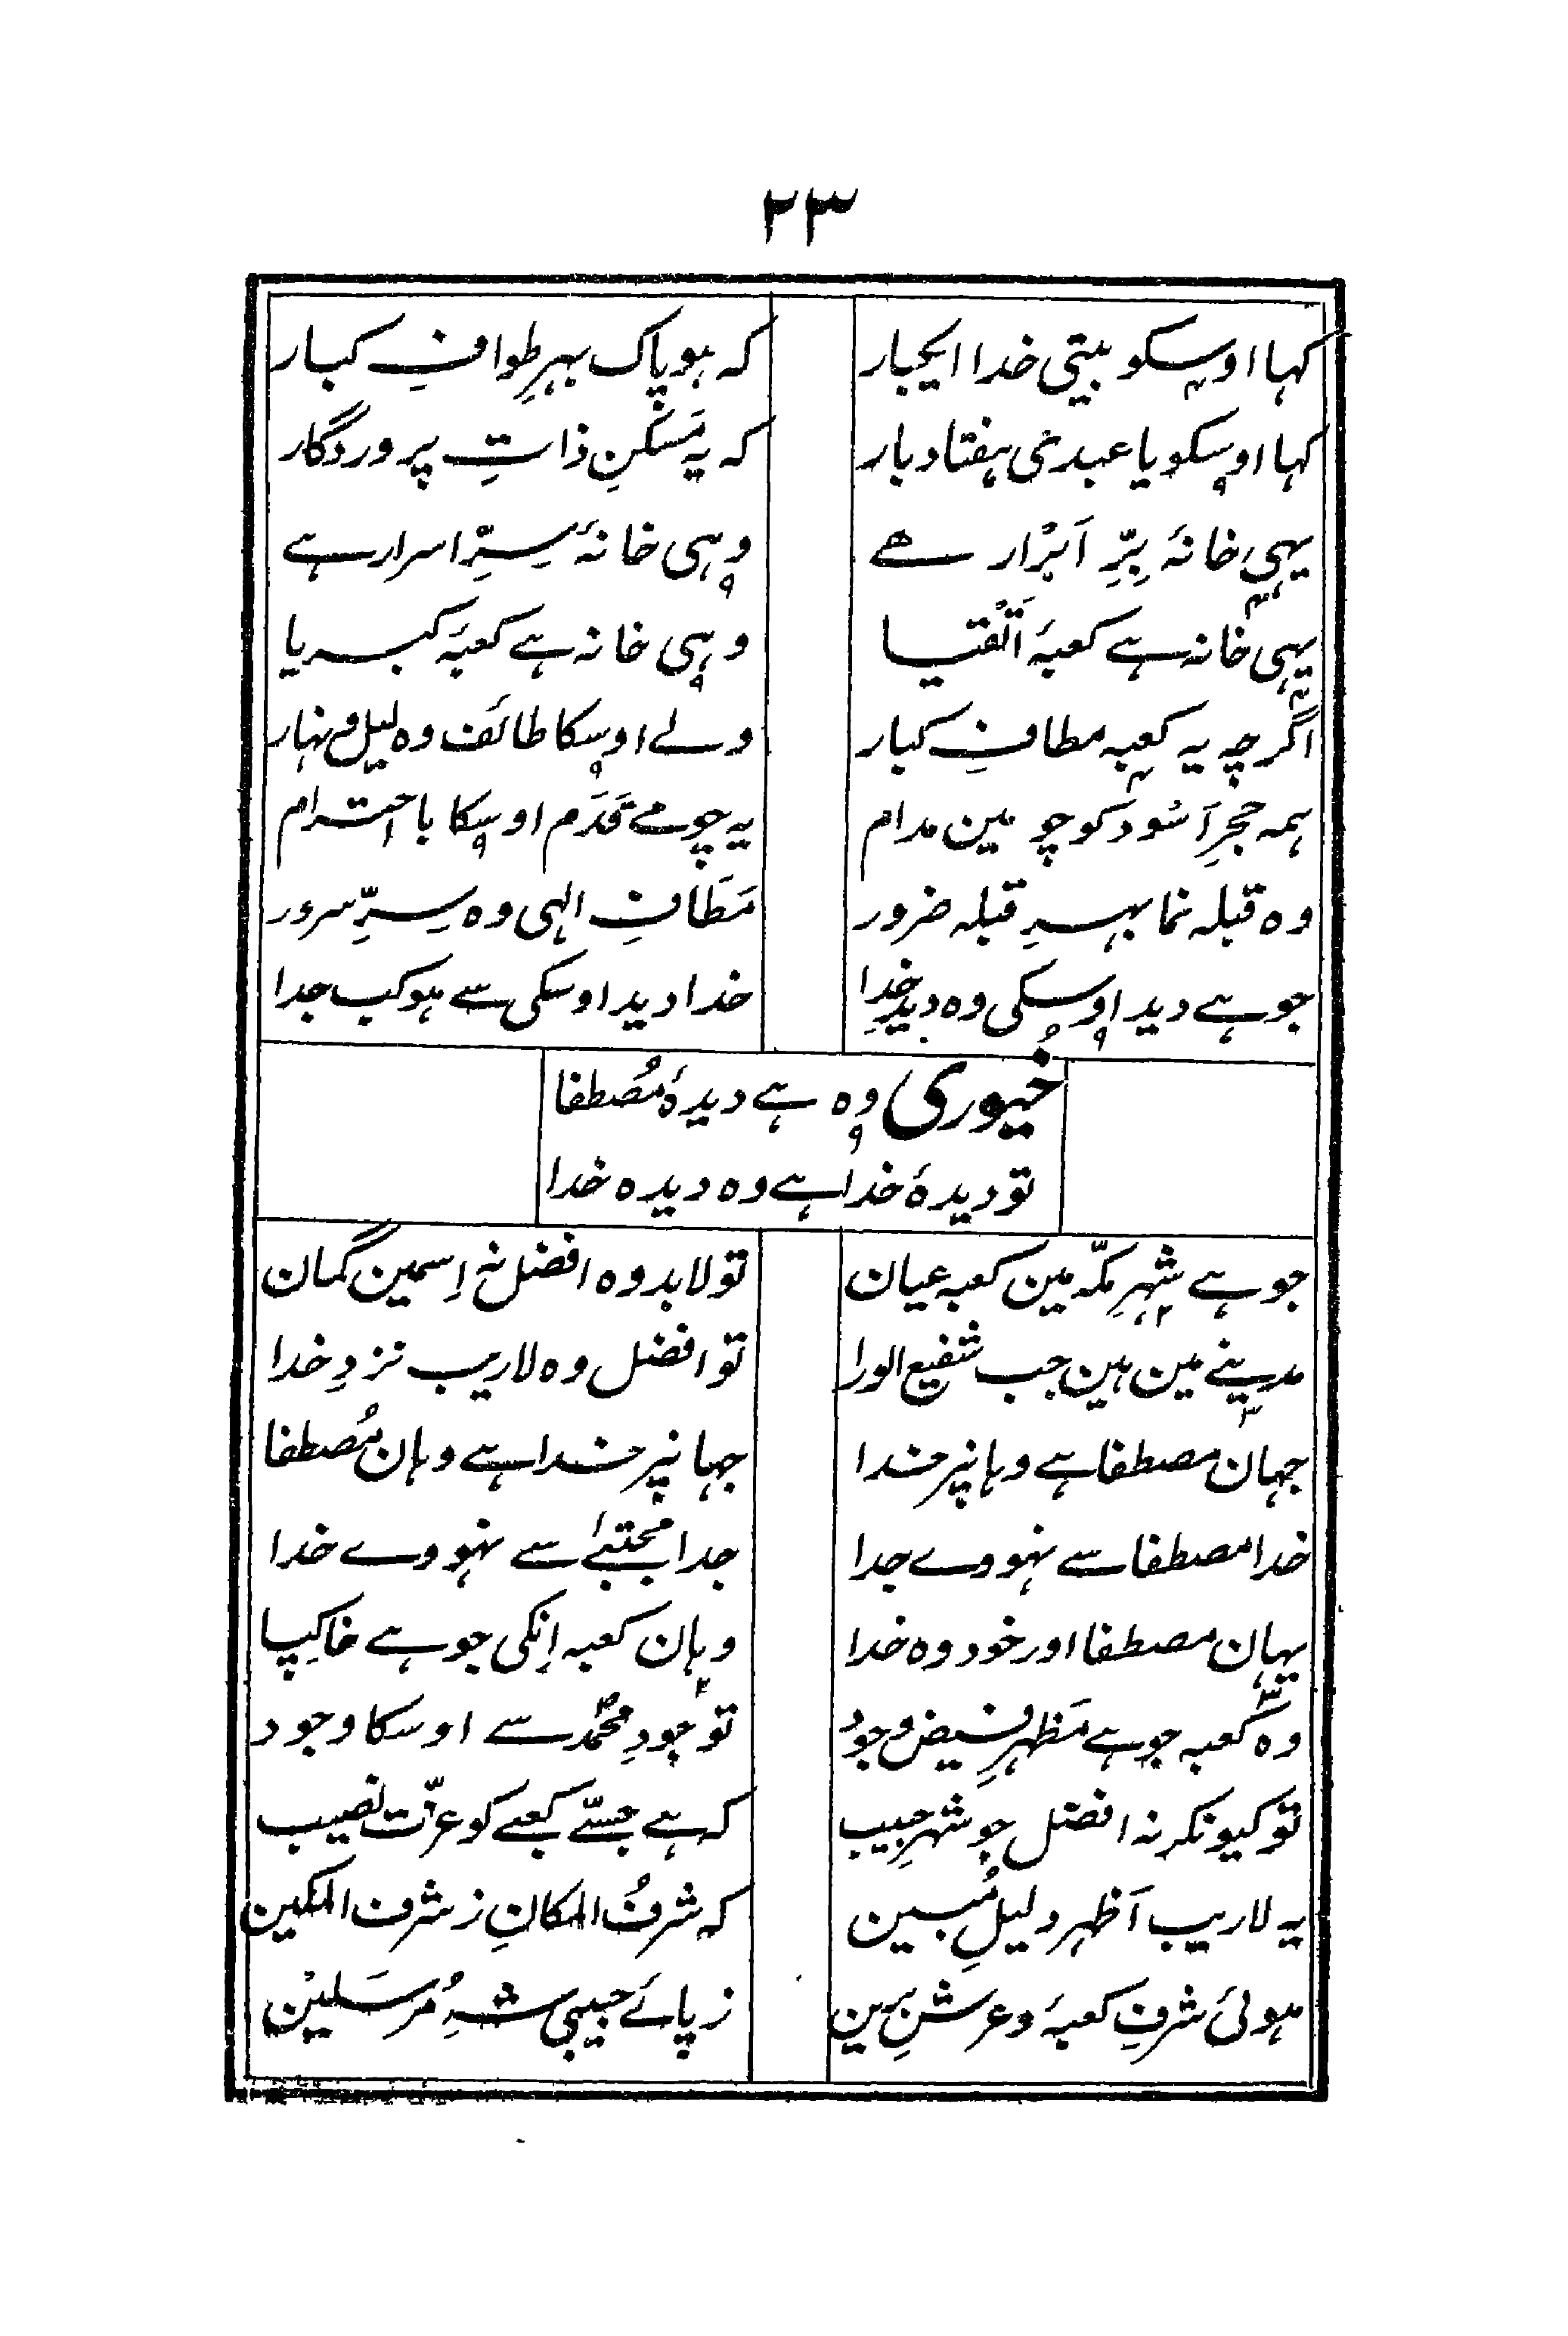 ۲۳
کہا اوسکو بیتی خدا ایکبار کہ ہو پاک بہرِ طوافِ کبار
کہا اوسکو یا عبدی ہفتاد بار کہ یہ مَسْکنِ ذاتِ پروردگار
یہی خانۂ بِرِّ اَبْرار ہے وہی خانۂ سِرِّ اسرار ہے
یہی خانہ ہے کعبۂ اَتْقیا وہی خانہ ہے کعبۂ کبریا
اگرچہ یہ کعبہ مطافِ کبار ولے اوسکا طائف وہ لیل و نہار
ہمہ حجرِ اَسْود کو چومین مدام یہ چومے قَدَم اوسکا با احترام
وہ قبلہ نما بہرِ قبلہ ضرور مَطَافِ الہی وہ سِرِّ سرور
جو ہے دید اوسکی وہ دیدِ خدا خدا دید اوسکی سے ہو کب جدا
خیوری وہ ہے دیدۂ مُصطفا
تو دیدۂ خدا ہے وہ دیدہ خدا
جو ہے شہرِ مکّہ مین کعبہ عیان تو لابد وہ افضل نہ اِسمین گمان
مدینے مین ہین جب شفیع الورا تو افضل وہ لاریب نزدِ خدا
جہان مصطفا ہے وہانپر خدا جہانپر خدا ہے وہان مُصطفا
خدا مصطفا سے نہووے جدا جدا مجتبےٰ سے نہووے خدا
یہان مصطفا اور خود وہ خدا وہان کعبہ اِنکی جو ہے خاکِپا
وہ کعبہ جو ہے مَظہرِ فیض و جود تو جودِ محمّد سے اوسکا وجود
تو کیونکر نہ افضل ہو شہرِ حبیب کہ ہے جسّے کعبے کو عزّت نصیب
یہ لاریب اَظہر دلیلِ مُبین کہ شرفُ المکانِ ز شرف المکین
ہوئی شرفِ کعبہ و عرشِ برین ز پائے حبیبی شہِ مُرسَلیْن